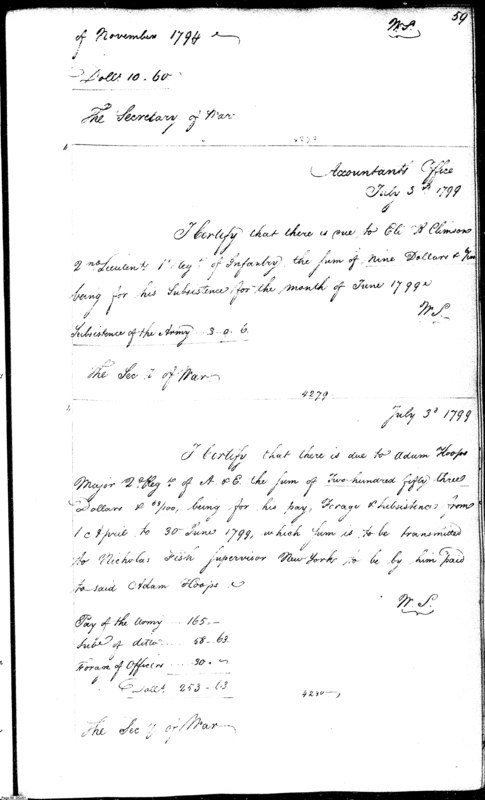 59
of November 1794
W.S.
Dolls. 10-60
The Secretary of War
Accountants Office
July 3d 1799
I Certify that there is due to Eli B Climson
2nd Lieutent. 1st Regt. of Infantry the sum of nine Dollars &
being for his Subsistence for the month of June 1799
W.S.
Subsistence of the Army
The Secy. of War
4279
July 3d 1799
I Certify that there is due to Adam Hoops
Major 2d Regt. of A & E. the sum of Two hundred fifty three
Dollars & 63/100, being for his pay, Forage & subsistence from
1 April to 30 June 1799, which sum is to be transmitted
to Nicholas Fish supervisor New York, to be by him paid
to said Adam Hoops
W.S.
Pay of the Army 165.-
Subs. of ditto 58-63
Forage of Officers 30.-
Dolls. 253-63
4280
The Secy. of War